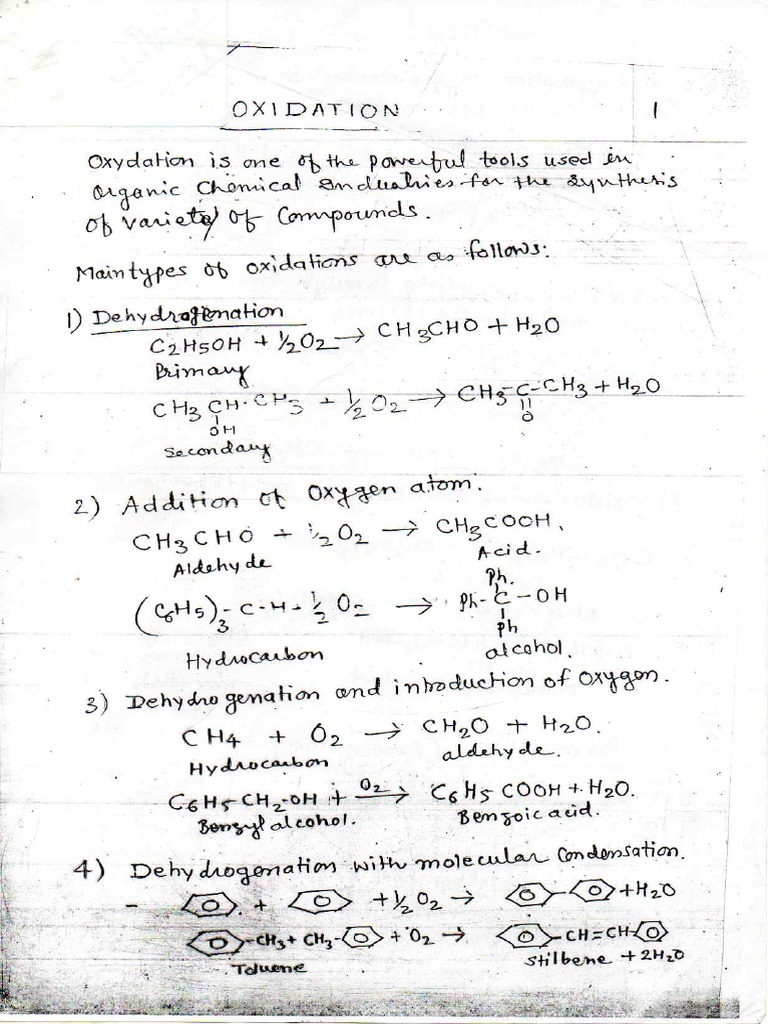 OXIDATION 1
Oxydation is one of the powerful tools used in
Organic Chemical Industries for the synthesis
of variety of Compounds.
Main types of oxidations are as follows:
1) Dehydrogenation
C2H5OH + 1/2O2 → CH3CHO + H2O
Primary
CH3 CH·CH3 + 1/2 O2 → CH3-C-CH3 + H2O
OH O
Secondary
2) Addition of Oxygen atom.
CH3CHO + 1/2O2 → CH3COOH.
Aldehyde Acid.
Ph.
(C6H5)3-C-H + 1/2 O2 → Ph-C-OH
Ph
Hydrocarbon alcohol.
3) Dehydrogenation and introduction of Oxygen.
CH4 + O2 → CH2O + H2O.
Hydrocarbon aldehyde.
C6H5-CH2-OH + O2 → C6H5 COOH + H2O.
Benzyl alcohol. Benzoic acid.
4) Dehydrogenation with molecular Condensation.
- + +1/2O2 → +H2O
-CH3 + CH3- + O2 → -CH=CH-
Toluene stilbene + 2H2O